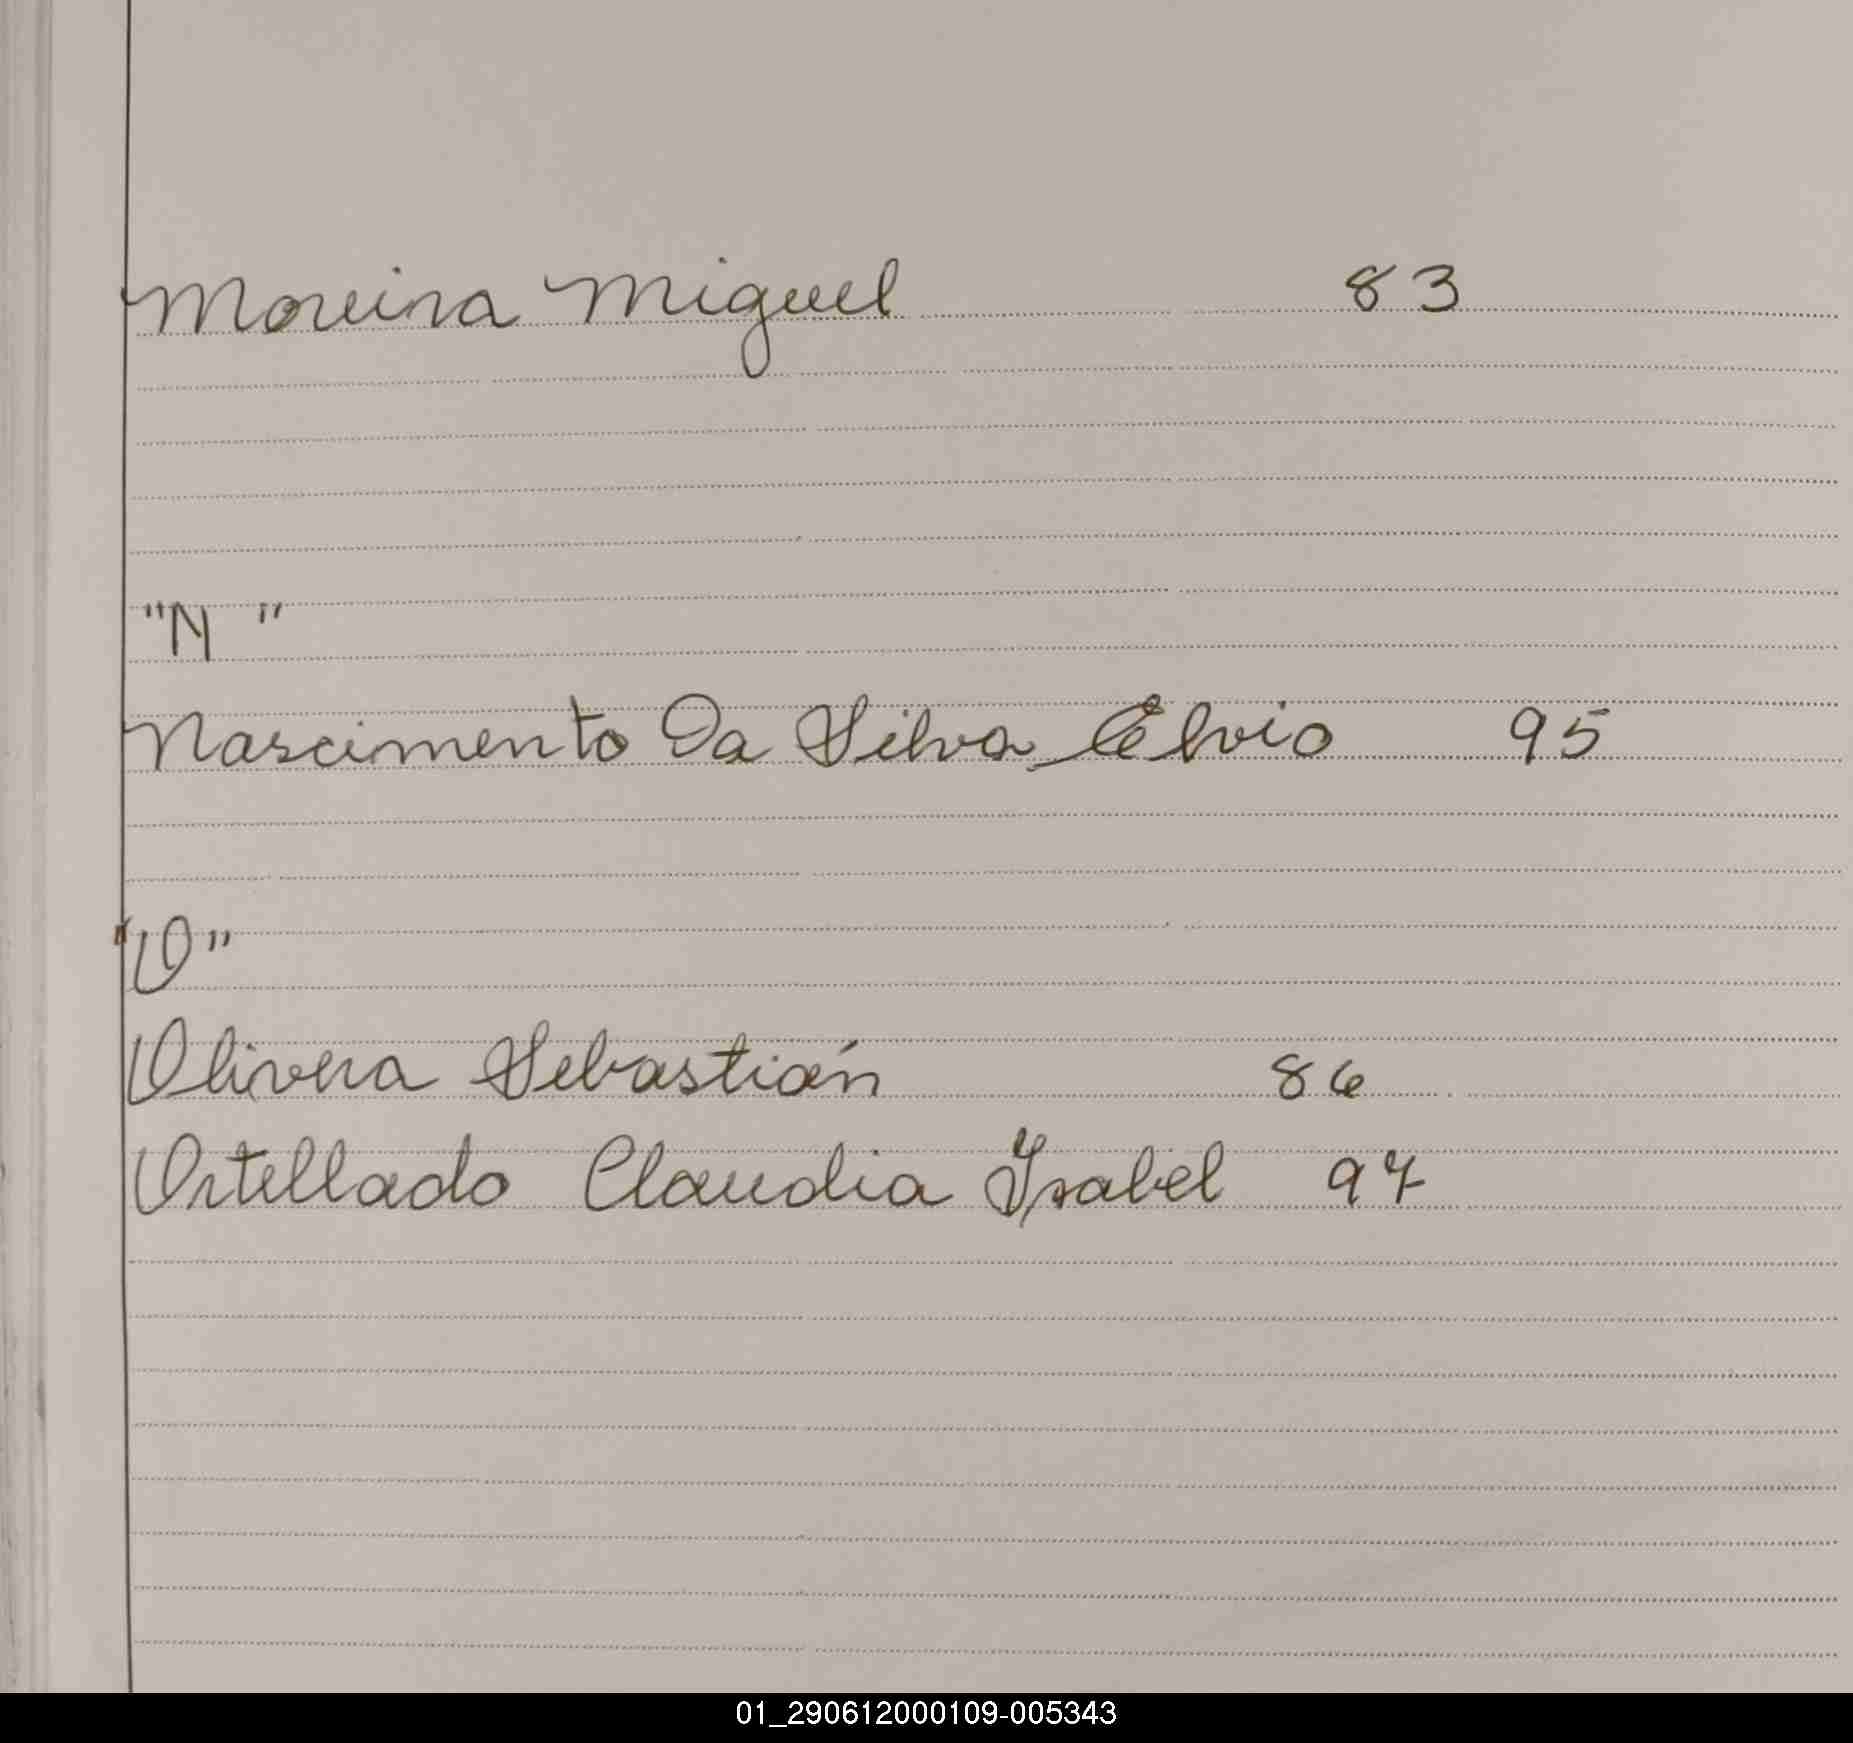 Moreira Miguel 83
"N"
Nascimento Da Silva Elvio 95
"O"
Olivera Sebastián 86
Ortellado Claudia Ysabel 97
01_290612000109-005343